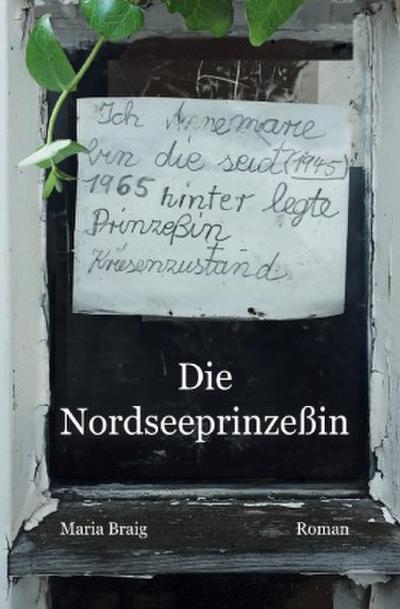 Ich Annemarie
bin die seid (1945)
1965 hinter legte
Prinzeßin
Kriesenzustand
Die
Nordseeprinzeßin
Maria Braig
Roman